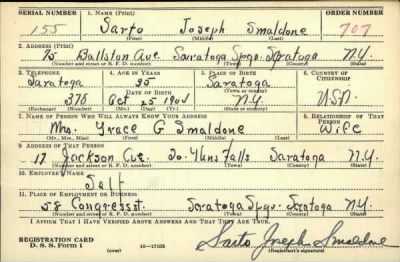 SERIAL NUMBER 1. NAME (Print) ORDER NUMBER
155 Sarto Joseph Smaldone 707
(First) (Middle) (Last)
2. ADDRESS (Print)
75 Ballston Ave. Saratoga Spgs. Saratoga N.Y.
(Number and street or R. F. D. number) (Town) (County) (State)
3. TELEPHONE 4. AGE IN YEARS 5. PLACE OF BIRTH 6. COUNTRY OF CITIZENSHIP
Saratoga 35 Saratoga
(Town or county)
378 Oct 25 N.Y. USA
(Exchange) (Number) (Mo.) (Day) (Yr.) (State or country)
7. NAME OF PERSON WHO WILL ALWAYS KNOW YOUR ADDRESS 8. RELATIONSHIP OF THAT PERSON
Mrs. Grace G Smaldone Wife
(Mr., Mrs., Miss) (First) (Middle) (Last)
9. ADDRESS OF THAT PERSON
17 Jackson Ave. So. Glens Falls Saratoga N.Y.
(Number and street or R. F. D. number) (Town) (County) (State)
10. EMPLOYER'S NAME
Self
11. PLACE OF EMPLOYMENT OR BUSINESS
58 Congress st. Saratoga Spgs. Saratoga N.Y.
(Number and street or R. F. D. number) (Town) (County) (State)
I AFFIRM THAT I HAVE VERIFIED ABOVE ANSWERS AND THAT THEY ARE TRUE.
REGISTRATION CARD Sarto Joseph Smaldone
D. S. S. FORM 1 (over) 16—17105 (Registrant's signature)